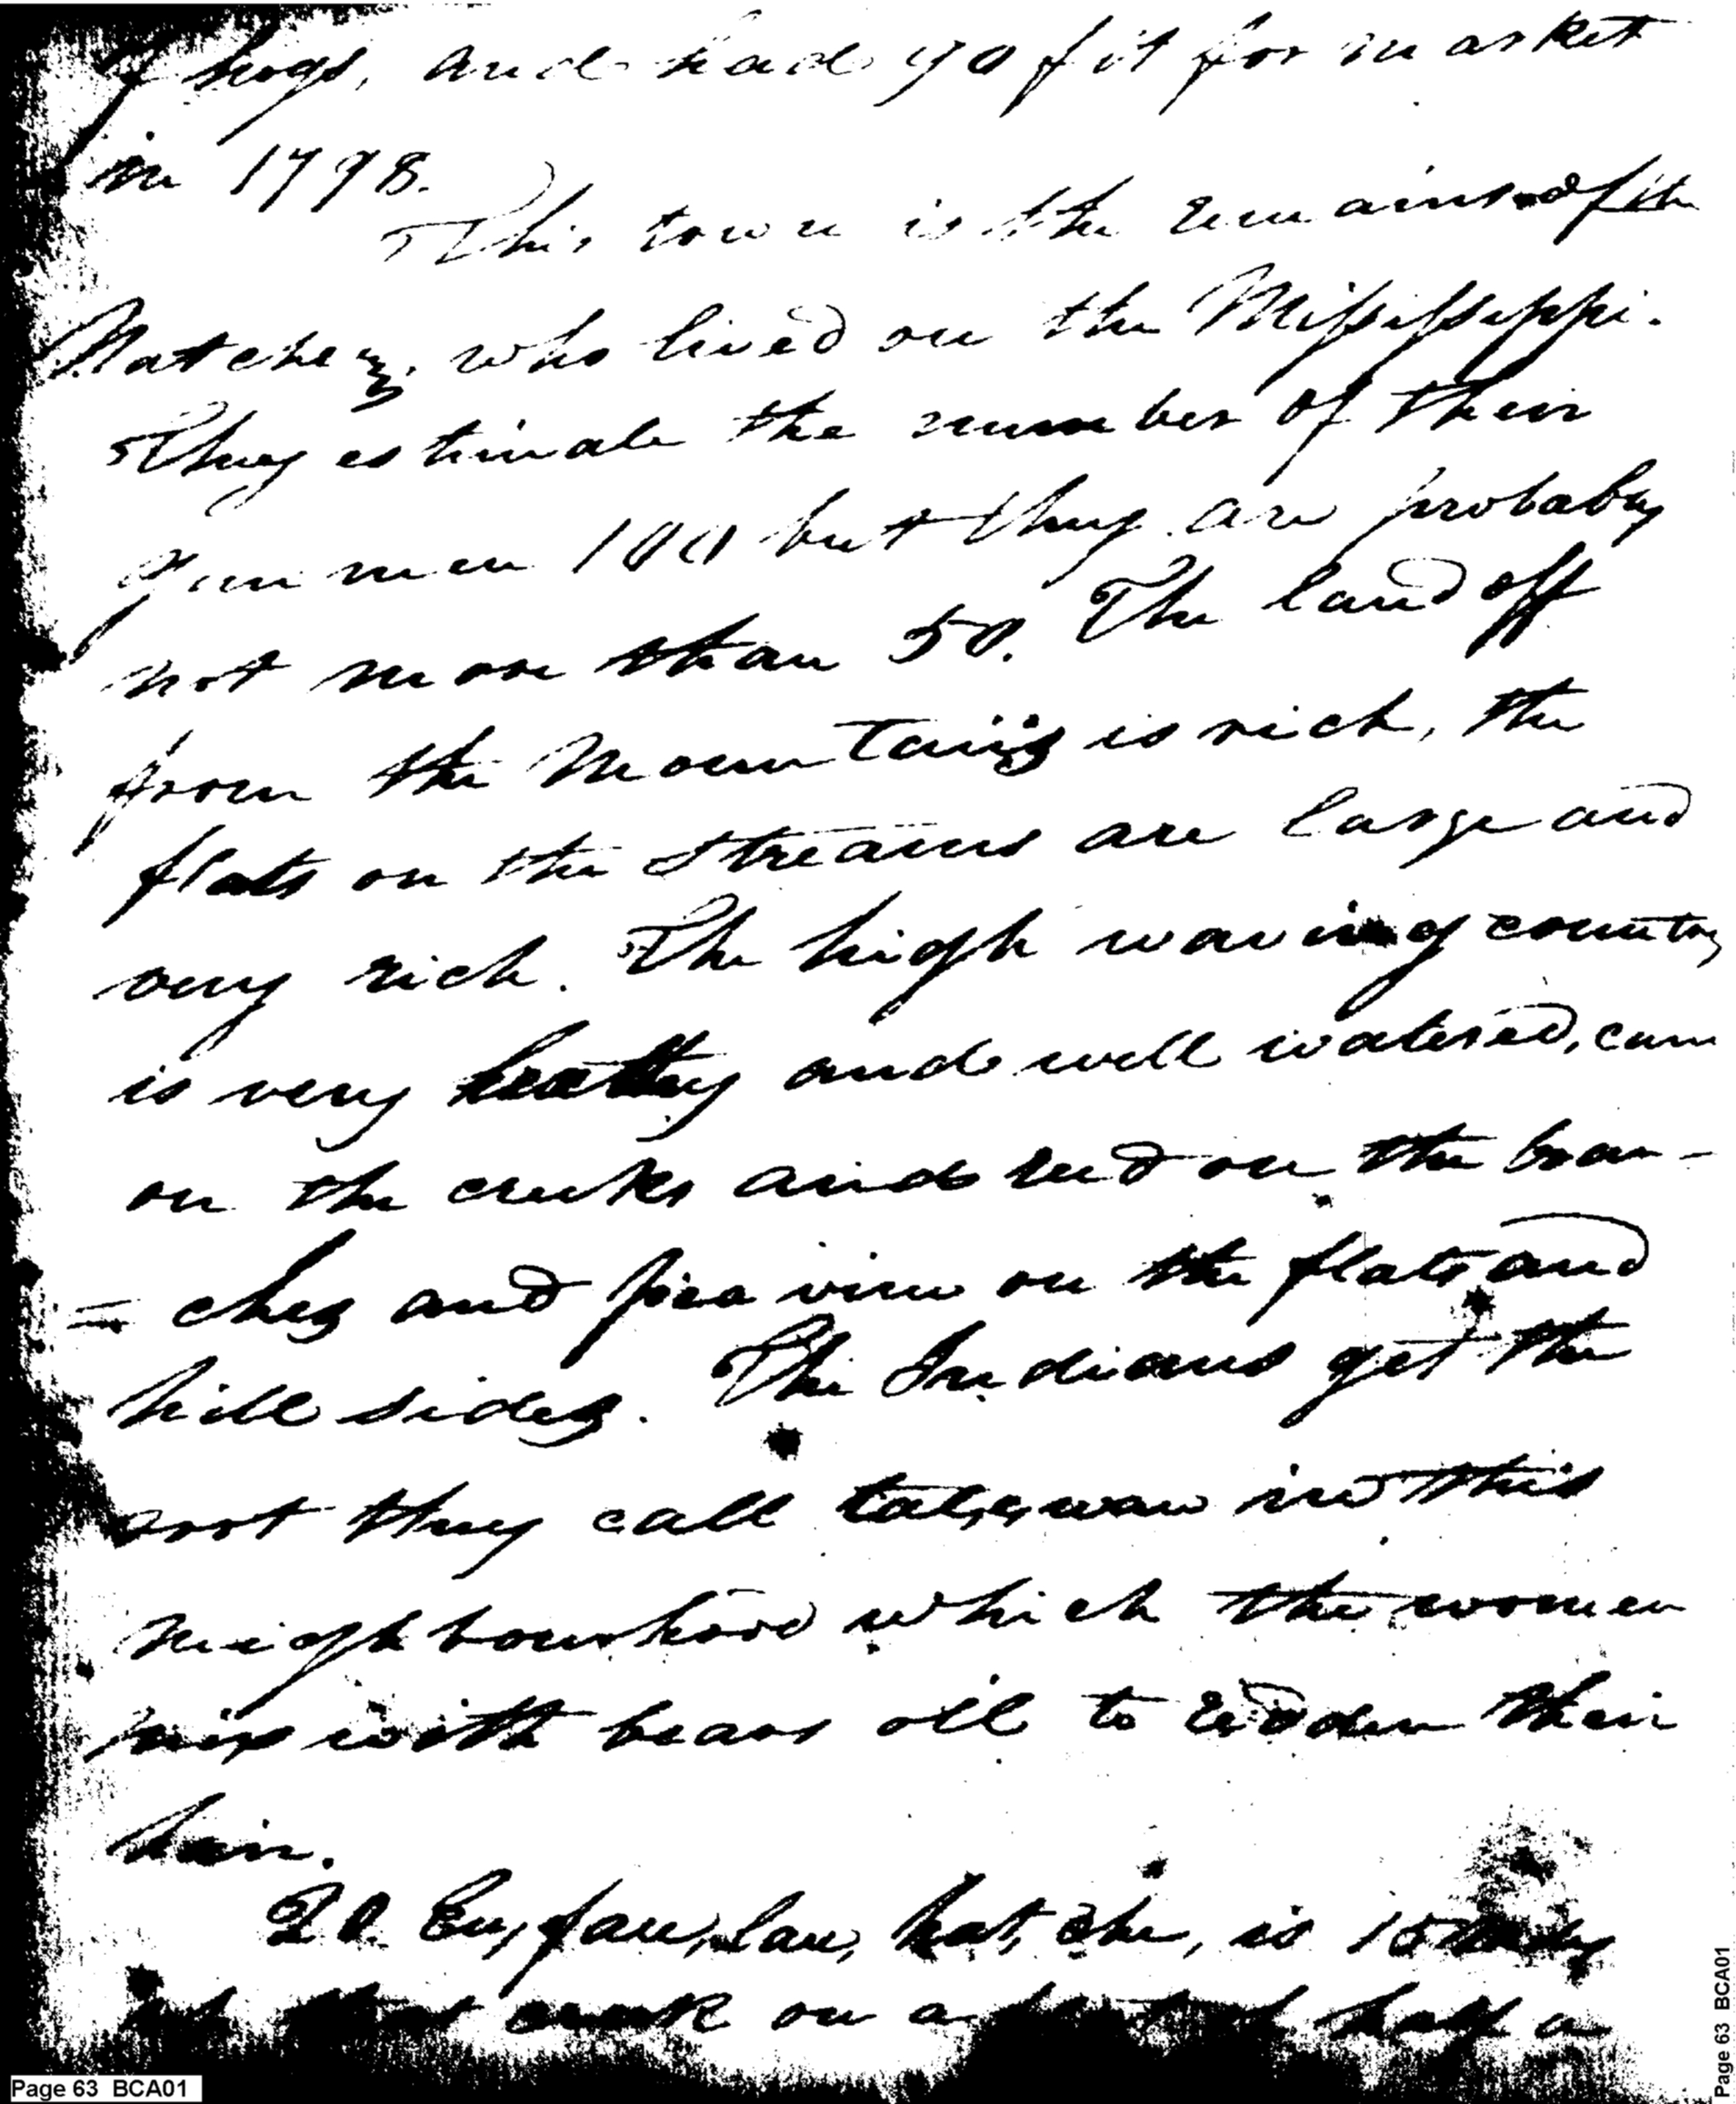 of hogs, and had 70 fit for market
in 1798.
This town is the remains of the
Natchez, who lived on the Mississippi.
They estimate the number of their
gun men 100 but they are probably
not more than 50. The land off
from the Mountains is rich, the
flats on the streams are large and
very rich. The high waving country
is very healthy and well watered, cane
on the creeks and reed on the bran-
= ches and pea vine on the flats and
hill sides. The Indians get the
root they call tale,wau in this
neighbourhood which the women
mix with bears oil to redden their
hair.
20. Eu,fau,lau, hat, che, is 15
creek on a half a
Page 63 BCA01
Page 63 BCA01